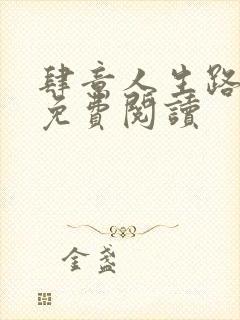 肆意人生路
免費閱讀
金盞